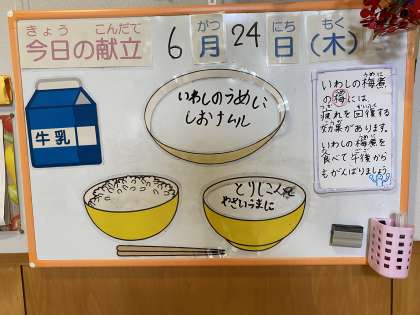 きょう こんだて
今日の献立
がつ にち もく
6月24日(木)
牛乳
いわしのうめに
しおナムル
とりじゃが
やさいうまに
うめに
いわしの梅煮
の梅には、
疲れを回復する
効果があります。
いわしの梅煮を
食べて午後から
もがんばりましょう